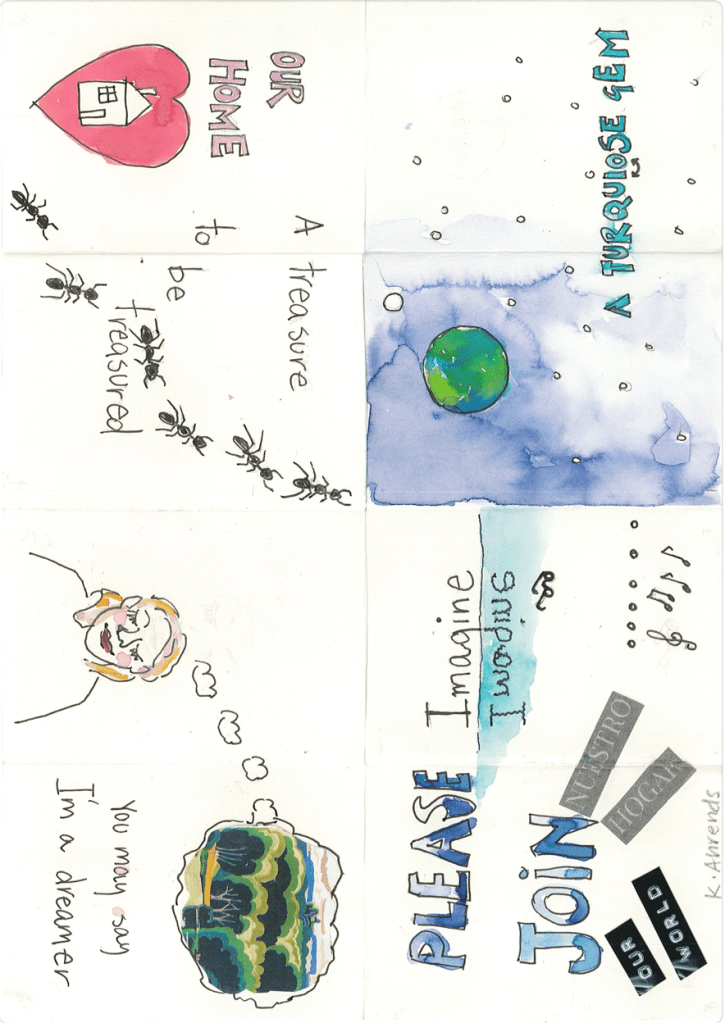 PLEASE
JOIN
OUR
WORLD
NUESTRO
HOGAR
K. Ahrends
Imagine
Imagine
A TURQUIOSE GEM
OUR
HOME
A treasure
to be
treasured
You may say
I'm a dreamer